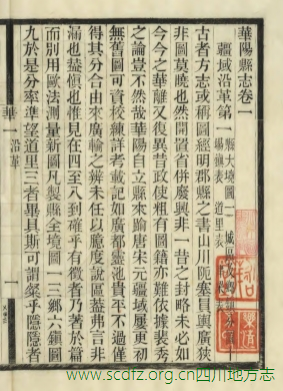 華陽縣志卷一
疆域沿革第一
縣大境圖二
古者方志或稱圖經明郡縣之書山川阨塞員輿廣狹
非圖莫曉也然開置省併廢興非一昔之封畧未必如
今今之華離又復異昔政使粗有圖籍亦難依據裴秀
之論豈不然哉華陽自立縣來踰唐宋元疆域屢更初
無舊圖可資校練詳者載記如廣都靈池貴平不過僅
得其分合由來廣輪之辨未任以臆度說區蓋弗言非
漏也葢愼也惟見在四至八到確乎有徵者乃著於篇
而別用歐法測量新圖凡製縣全境圖一三鄉六鎭圖
九於是分率準望道里三者畢具斯可謂粲乎隱隱者
華 一 沿革
www.scdfz.org.cn四川地方志